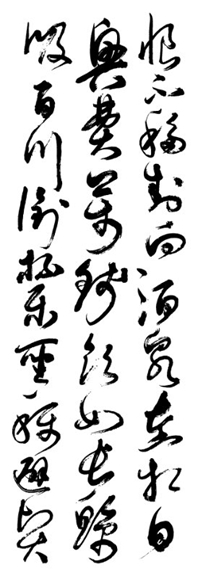 恨不移封向酒泉左相日
興費萬錢飲如長鯨
吸百川銜杯樂聖稱避賢